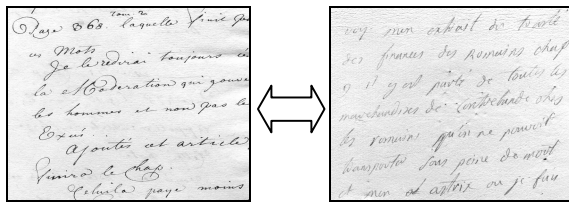 tom. 2
Page 368. laquelle finit par
ces Mots
Je le redirai toujours c'est
la Moderation qui gouve
les hommes et non pas les
Excès.
ajoutés cet article
finira le Chap.
page moins
voy. mon extrait du traité
des finances des Romains chap
il y est parlé de toutes les
marchandises de contrebande chés
les romains qu'on ne pouvoit
transporter sous peine de mort
et mon ou je fais